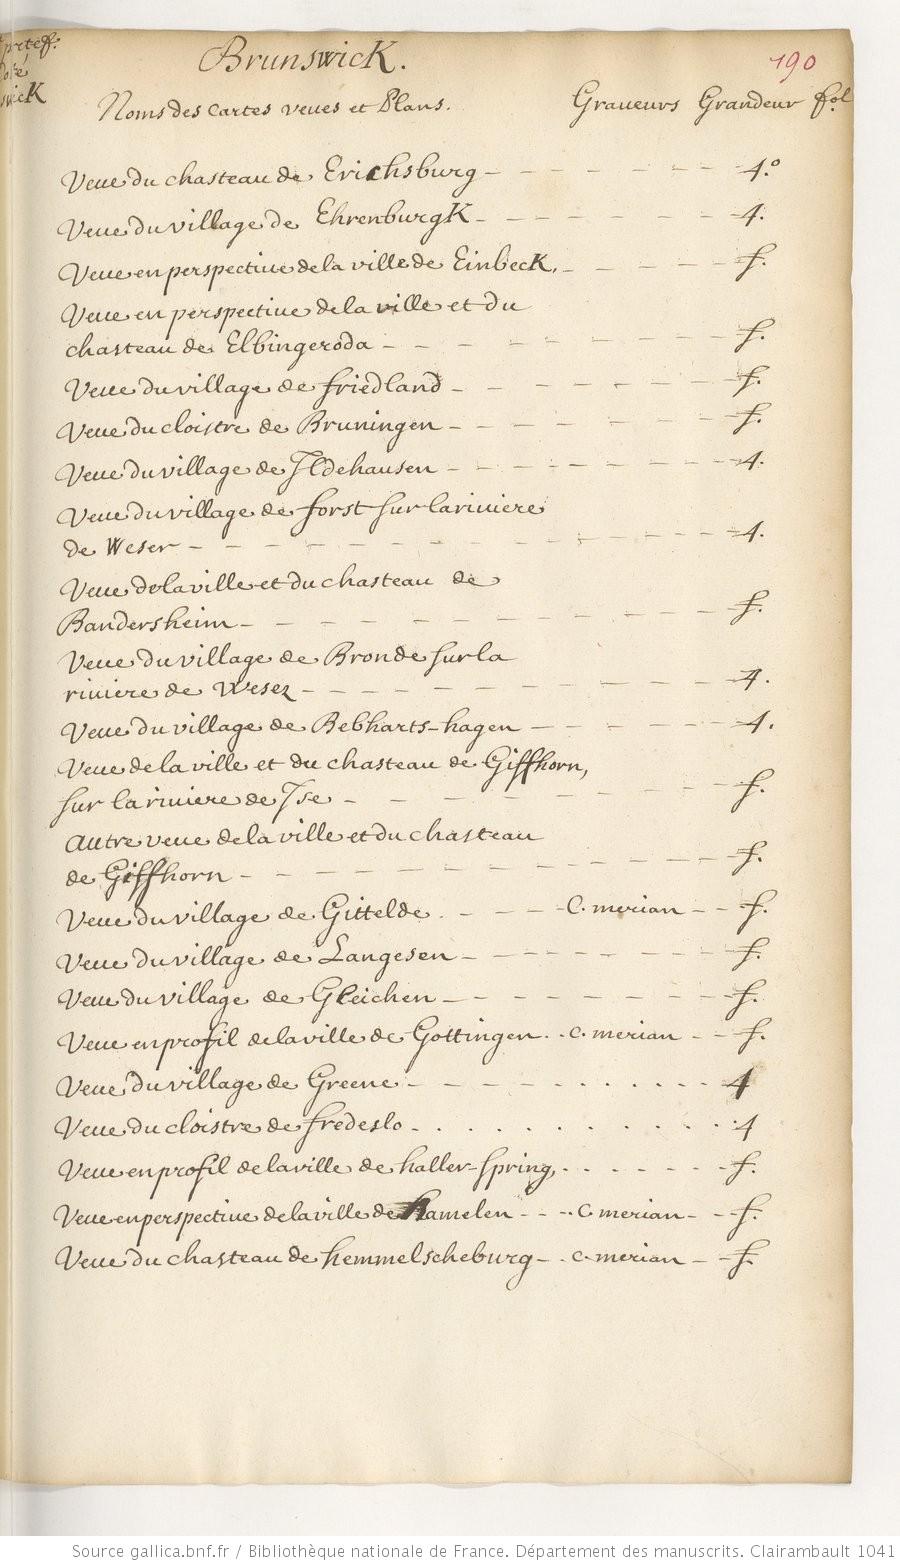 Brunswick.
190
Noms des cartes veues et Plans. Graueurs Grandeur fol
Veue du chasteau de Erichsburg 4.º
Veue du village de Ehrenburgk 4.
Veue en perspectiue de la ville de Einbeck. f.
Veue en perspectiue de la ville et du
chasteau de Elbingeroda f.
Veue du village de friedland f.
Veue du cloistre de Bruningen f.
Veue du village de Ildehausen 4.
Veue du village de forst sur la riuiere
de Weser 4.
Veue de la ville et du chasteau de
Bandersheim f.
Veue du village de Bronde sur la
riuiere de Wesez 4.
Veue du village de Bebharts-hagen 4.
Veue de la ville et du chasteau de Giffhorn,
sur la riuiere de Ise f.
autre veue de la ville et du chasteau
de Giffhorn f.
Veue du village de Gittelde C. merian f.
Veue du village de Langesen f.
Veue du village de Gleichen f.
Veue en profil de la ville de Gottingen c. merian f.
Veue du village de Greene 4
Veue du cloistre de fredeslo 4
Veue en profil de la ville de haller-spring, f.
Veue en perspectiue de la ville de hamelen C. merian f.
Veue du chasteau de hemmelscheburg c. merian f.
Source gallica.bnf.fr / Bibliothèque nationale de France. Département des manuscrits. Clairambault 1041